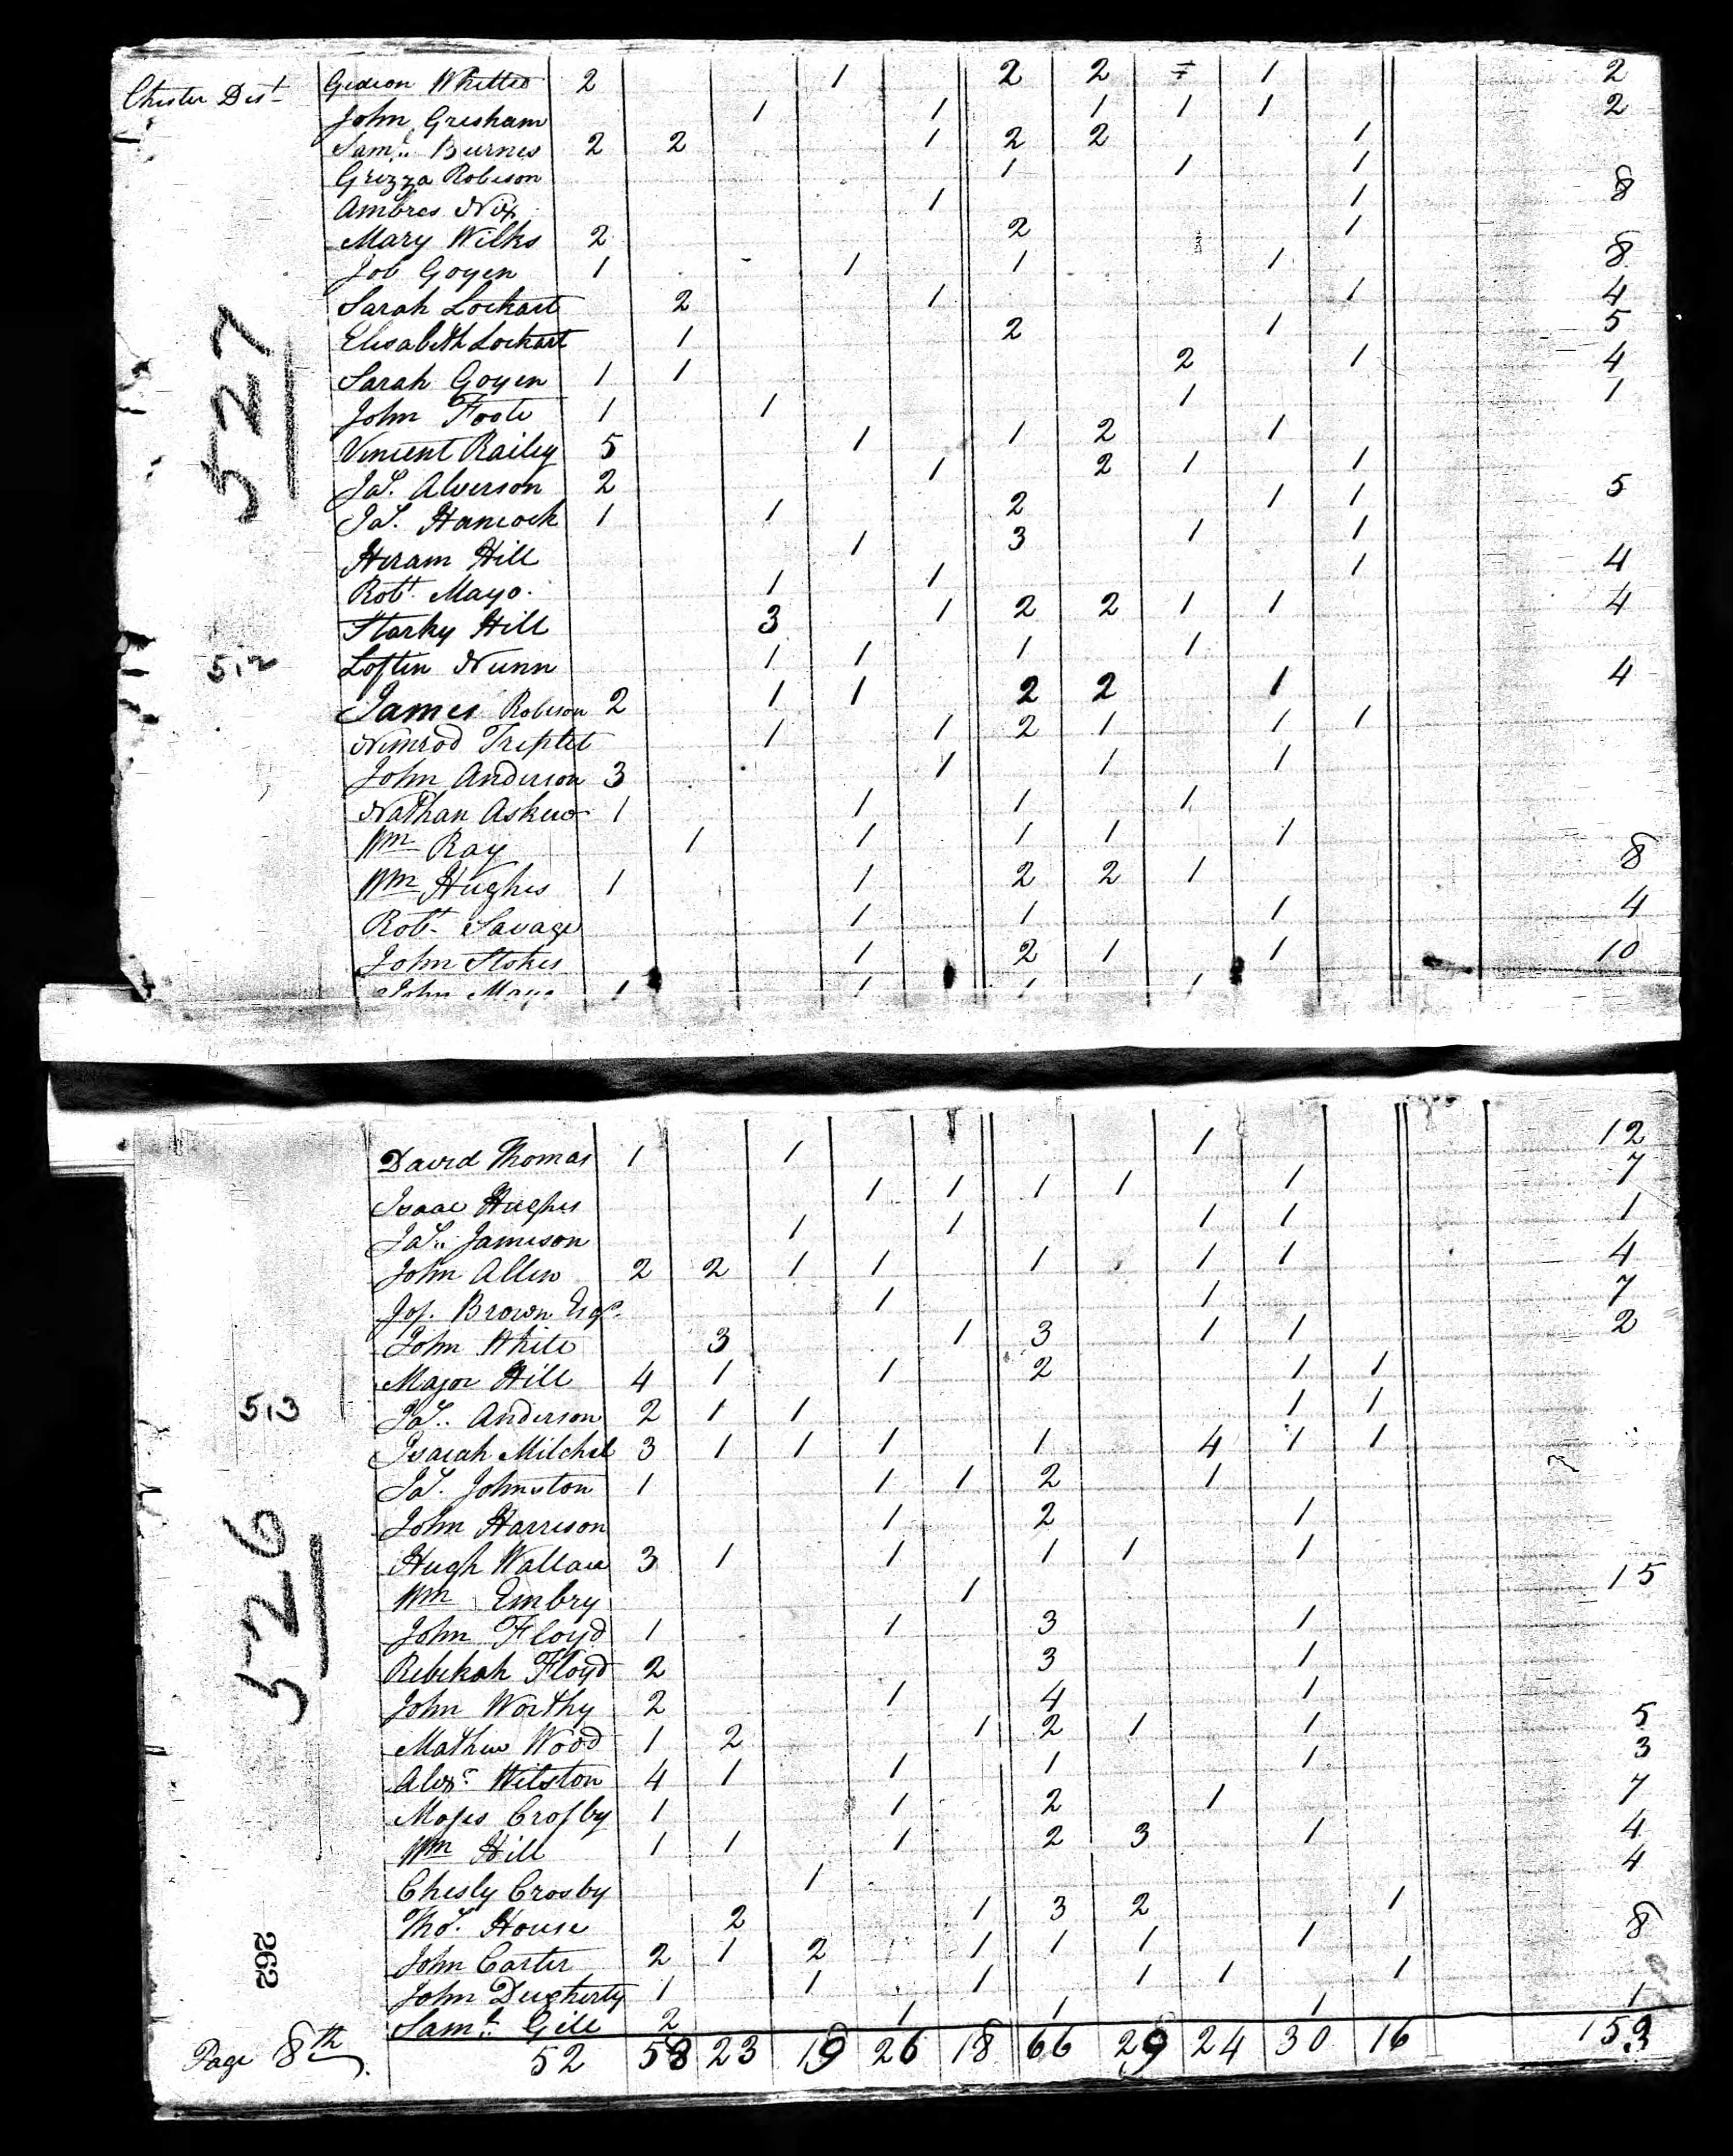 Chester Dist Gideon Whitted 2 1 2 2 1 2
John Gresham 1 1 1 1 1 2
Sam.ll Burnes 2 2 1 2 2 1
Grizza Robeson 1 1 1
Ambres Nix 1 1 8
Mary Wilks 2 2 1
Job Goyen 1 1 1 1 8
Sarah Lockart 2 1 1 4
Elisabeth Lockart 1 2 1 5
Sarah Goyen 1 1 2 1 4
John Foote 1 1 1 1
527
Vincent Railey 5 1 1 2 1
Jas. Alverson 2 1 2 1 1
Jas. Hancock 1 1 2 1 1 5
Hiram Hill 1 3 1 1
Robt. Mayo 1 1 1 4
Starky Hill 3 1 2 2 1 1 4
512 Loftin Nunn 1 1 1 1
James Robeson 2 1 1 2 2 1 4
Nimrod Triplet 1 1 2 1 1 1
John Anderson 3 1 1 1
Nathan Askew 1 1 1 1
Wm Ray 1 1 1 1 1
Wm Hughes 1 1 2 2 1 8
Robt. Savage 1 1 1 4
John Stokes 1 2 1 1 10
John Mayo 1 1 1 1
David Thomas 1 1 1 12
Isaac Hughes 1 1 1 1 1 7
Jas. Jameson 1 1 1 1 1
John Allen 2 2 1 1 1 1 1 4
Jos. Brown Esqr. 1 1 7
John White 3 1 3 1 1 2
Major Hill 4 1 1 2 1 1
513 Jas. Anderson 2 1 1 1 1
Isaiah Mitchel 3 1 1 1 1 4 1 1
Jas. Johnston 1 1 1 2 1
John Harrison 1 2 1
Hugh Wallace 3 1 1 1 1 1
526
Wm Embry 1 15
John Floyd 1 1 3 1
Rebekah Floyd 2 3 1
John Worthy 2 1 4 1
Mathew Wood 1 2 1 2 1 1 5
Alexr. Wilston 4 1 1 1 1 3
Moses Crosby 1 1 2 1 7
Wm Hill 1 1 1 2 3 1 4
Chesly Crosby 1 4
Thos. House 2 1 3 2 1
262
John Carter 2 1 2 1 1 1 1 8
John Dugherty 1 1 1 1 1 1
Saml. Gill 2 1 1 1 1
Page 8th. 52 58 23 19 26 18 66 29 24 30 16 153